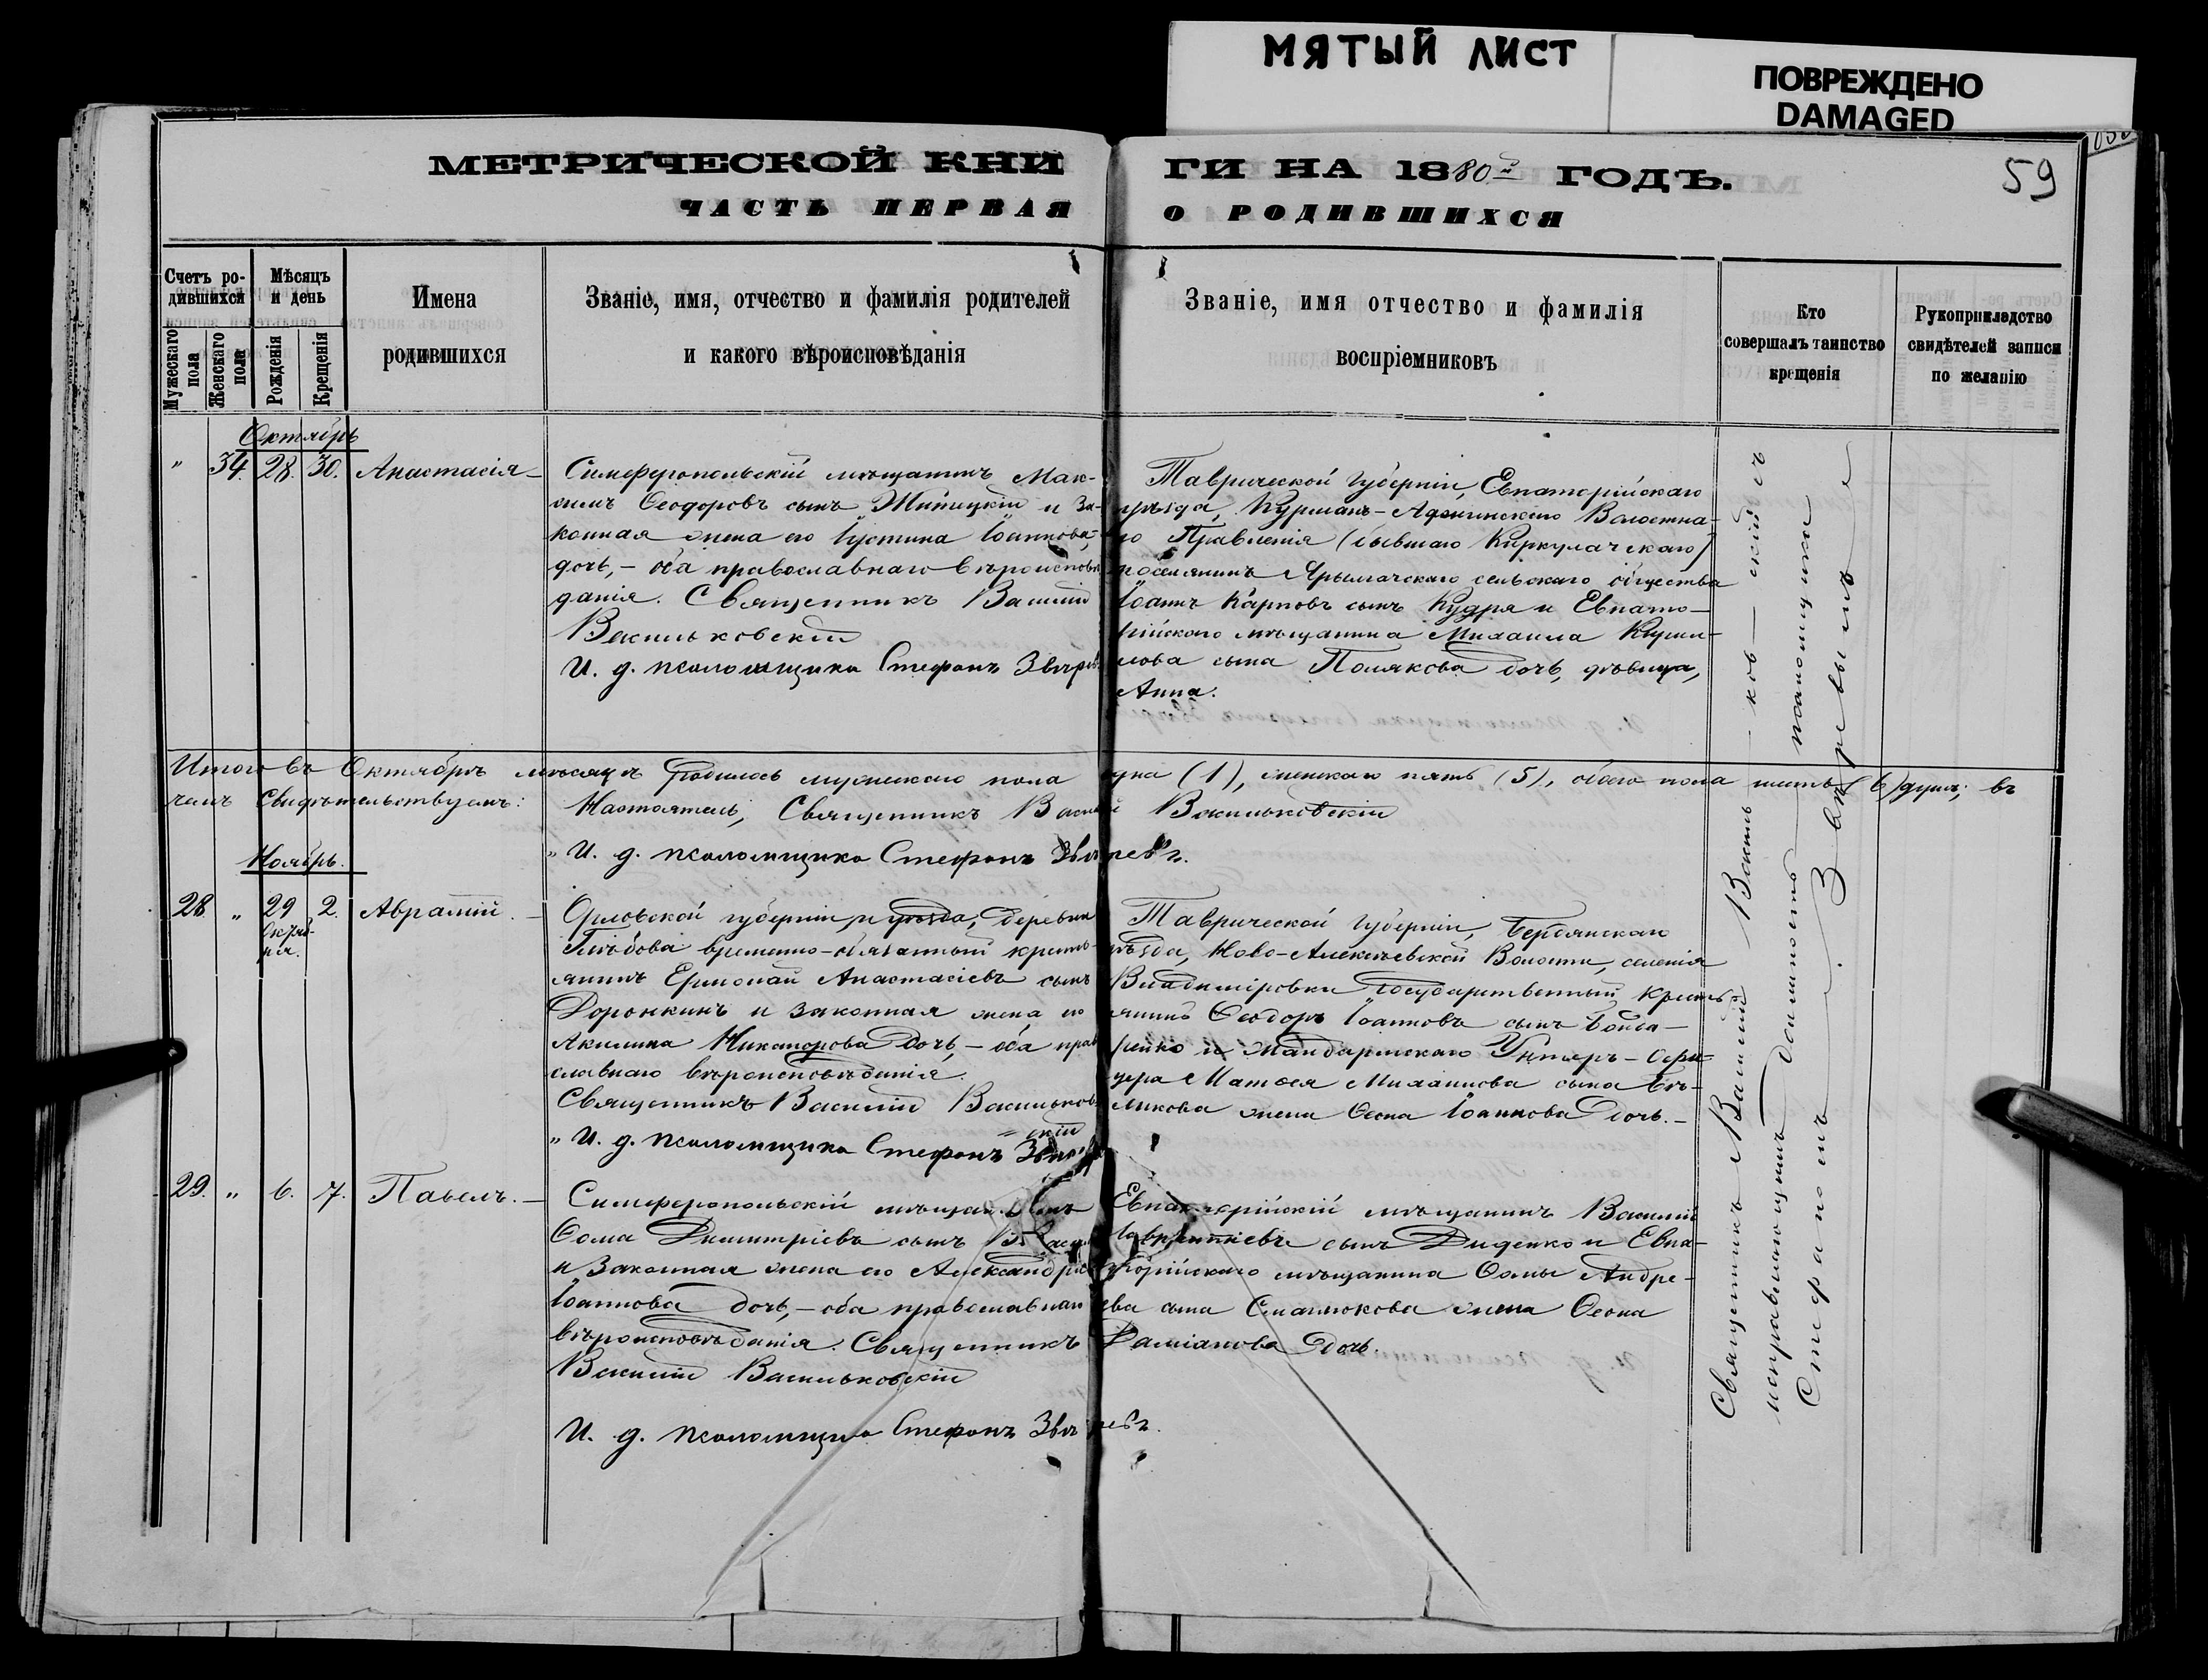 МЯТЫЙ ЛИСТ
ПОВРЕЖДЕНО
DAMAGED
59
МЕТРИЧЕСКОЙ КНИГИ НА 1880й ГОДЪ.
ЧАСТЬ ПЕРВАЯ О РОДИВШИХСЯ
Счетъ ро-
дившихся
Мужескаго пола
Женскаго пола
Мѣсяцъ
и день
Рожденія
Крещенія
Имена
родившихся
Званіе, имя, отчество и фамилія родителей
и какого вѣроисповѣданія
Званіе, имя отчество и фамилія
воспріемниковъ
Кто
совершалъ таинство
крещенія
Рукоприкладство
свидѣтелей записи
по желанію
Октябрь
" 34. 28. 30. Анастасія
Симферопольскій мѣщанинъ Мак-
симъ Ѳеодоровъ сынъ Житицкій и за-
конная жена его Іустина Іоаннова
дочь, – оба православнаго вѣроисповѣ
данія. Священникъ Василій
Васильковскій
И. д. псаломщика Стефанъ Звѣревъ
Таврической губерніи, Евпаторійскаго
уѣзда, Курманъ-Аджинскаго Волостна-
го Правленія (бывшаго Киркулачскаго)
поселянинъ Ярылгачскаго сельскаго общества
Іоаннъ Карповъ сынъ Кудря и Евпато-
рійскаго мѣщанина Михаила Кирил-
лова сына Полякова дочь, дѣвица,
Анна.
Итого въ Октябрѣ мѣсяцѣ родилось мужескаго пола одна (1), женскаго пять (5), обоего пола шесть (6) душъ; въ
чемъ свидѣтельствуемъ: Настоятель, Священникъ Василій Васильковскій
" И. д. псаломщика Стефанъ Звѣревъ.
Ноябрь.
28 " 29 Октяб-
ря. 2. Аврамій.
Орловской губерніи и уѣзда, деревни
Глѣбова временно-обязанный кресть-
янинъ Ермолай Анастасіевъ сынъ
Доронкинъ и законная жена его
Акилина Никанорова дочь, – оба право
славнаго вѣроисповѣданія.
Священникъ Василій Васильков-
скій
" И. д. псаломщика Стефанъ Звѣревъ
Таврической губерніи, Бердянскаго
уѣзда, Ново-Алексѣевской Волости, селенія
Владиміровки государственный кресть-
янинъ Ѳеодоръ Іоанновъ сынъ
и жандармскаго Унтеръ-Офи-
цера Матѳея Михаилова сына Бѣ-
ликова жена Ѳеона Іоаннова дочь. –
29. " 6. 7. Павелъ. –
Симферопольскій мѣщанинъ
Ѳома Димитріевъ сынъ
и законная жена его Александра
Іоаннова дочь, – оба православнаго
вѣроисповѣданія. Священникъ
Василій Васильковскій
И. д. псаломщика Стефанъ Звѣревъ.
Евпаторійскій мѣщанинъ Василій
Лаврентіевъ сынъ Диденко и Евпа-
торійскаго мѣщанина Ѳомы Андре-
ева сына Смалюкова жена Ѳеона
Даміанова дочь.
Священникъ Василій Василь – ков – скій съ
исправляющимъ должность псаломщика
Стефаномъ Звѣревымъ